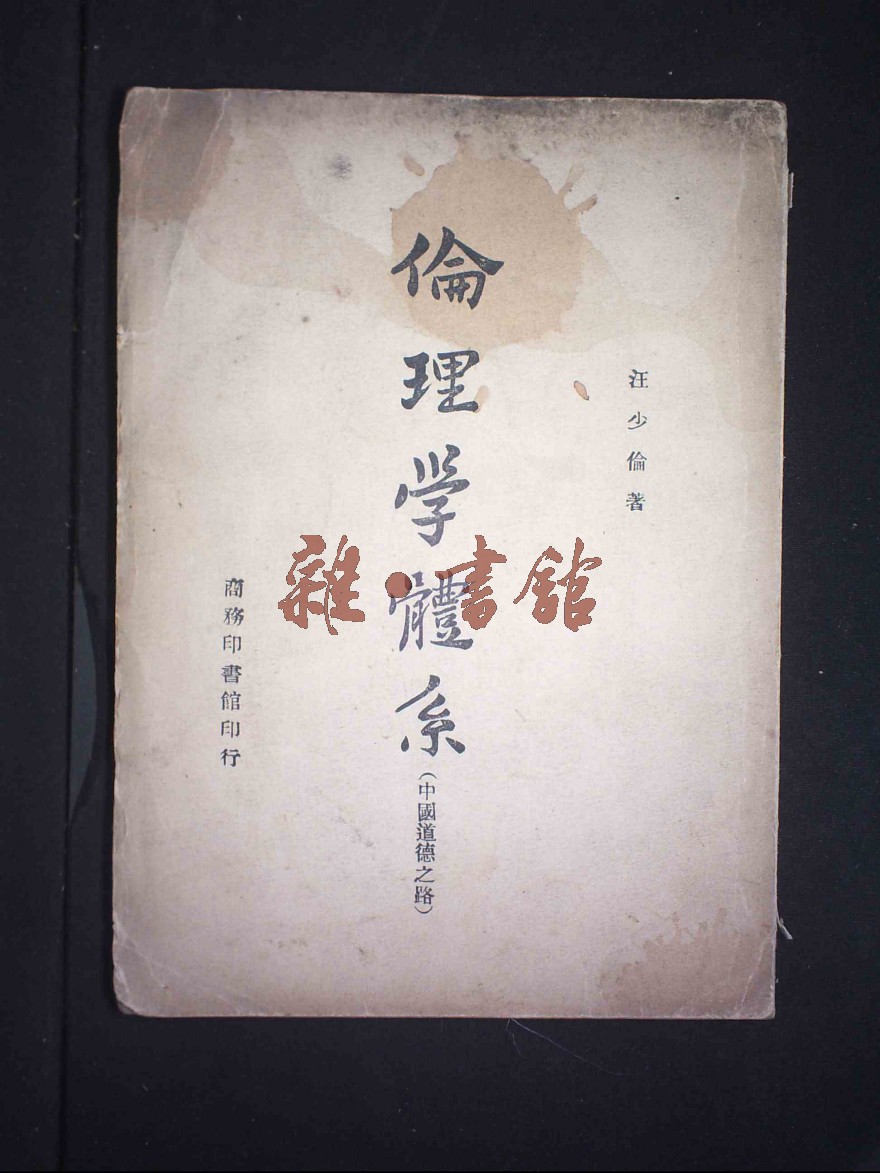 汪少倫著
倫理学體系
(中國道德之路)
商務印書館印行
雜·書館